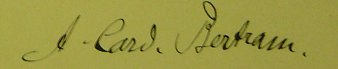 A. Card. Bertram.